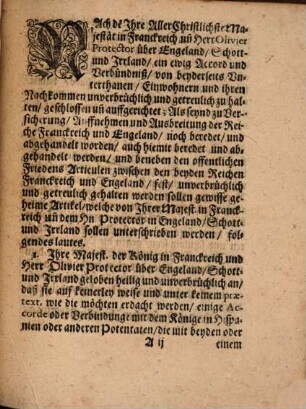 NAch dẽ Ihre AllerChristlichste Ma-
jestät in Franckreich uñ Herr Olivier
Protector über Engeland/Schott-
und Irrland/ ein ewig Accord und
Verbündniß/ von beyderseits Un-
terthanen/ Einwohnern und ihren
Nachkommen unverbrüchlich und getreulich zu hal-
ten/ geschlossen uñ auffgerichtet: Als seynd zu Ver-
sicherung/ Auffnehmen und Ausbreitung der Rei-
che Franckreich und Engeland/ noch beredet/ und
abgehandelt worden/ auch hiemit beredet und ab-
gehandelt werden/ und beneben den offentlichen
Friedens Articulen zwischen den beyden Reichen
Franckreich und Engeland/ fest/ unverbrüchlich
und getreulich gehalten werden sollen gewisse ge-
heime Artikel/welche von Ihrer Majest. in Franck-
reich uñ dem Hn Protector in Engeland/Schott-
und Irrland sollen unterschrieben werden/ fol-
gendes lautes.
1. Ihre Majest. der König in Franckreich und
Herr Olivier Protector über Engeland/Schott-
und Irrland geloben heilig und unverbrüchlich an/
daß sie auf keinerley weise und unter keinem præ-
text. wie die möchten erdacht werden/ einige Ac-
corde oder Verbindunge mit dem Könige in Hispa-
nien oder anderen Potentaten/die mit beyden oder
A ij einem